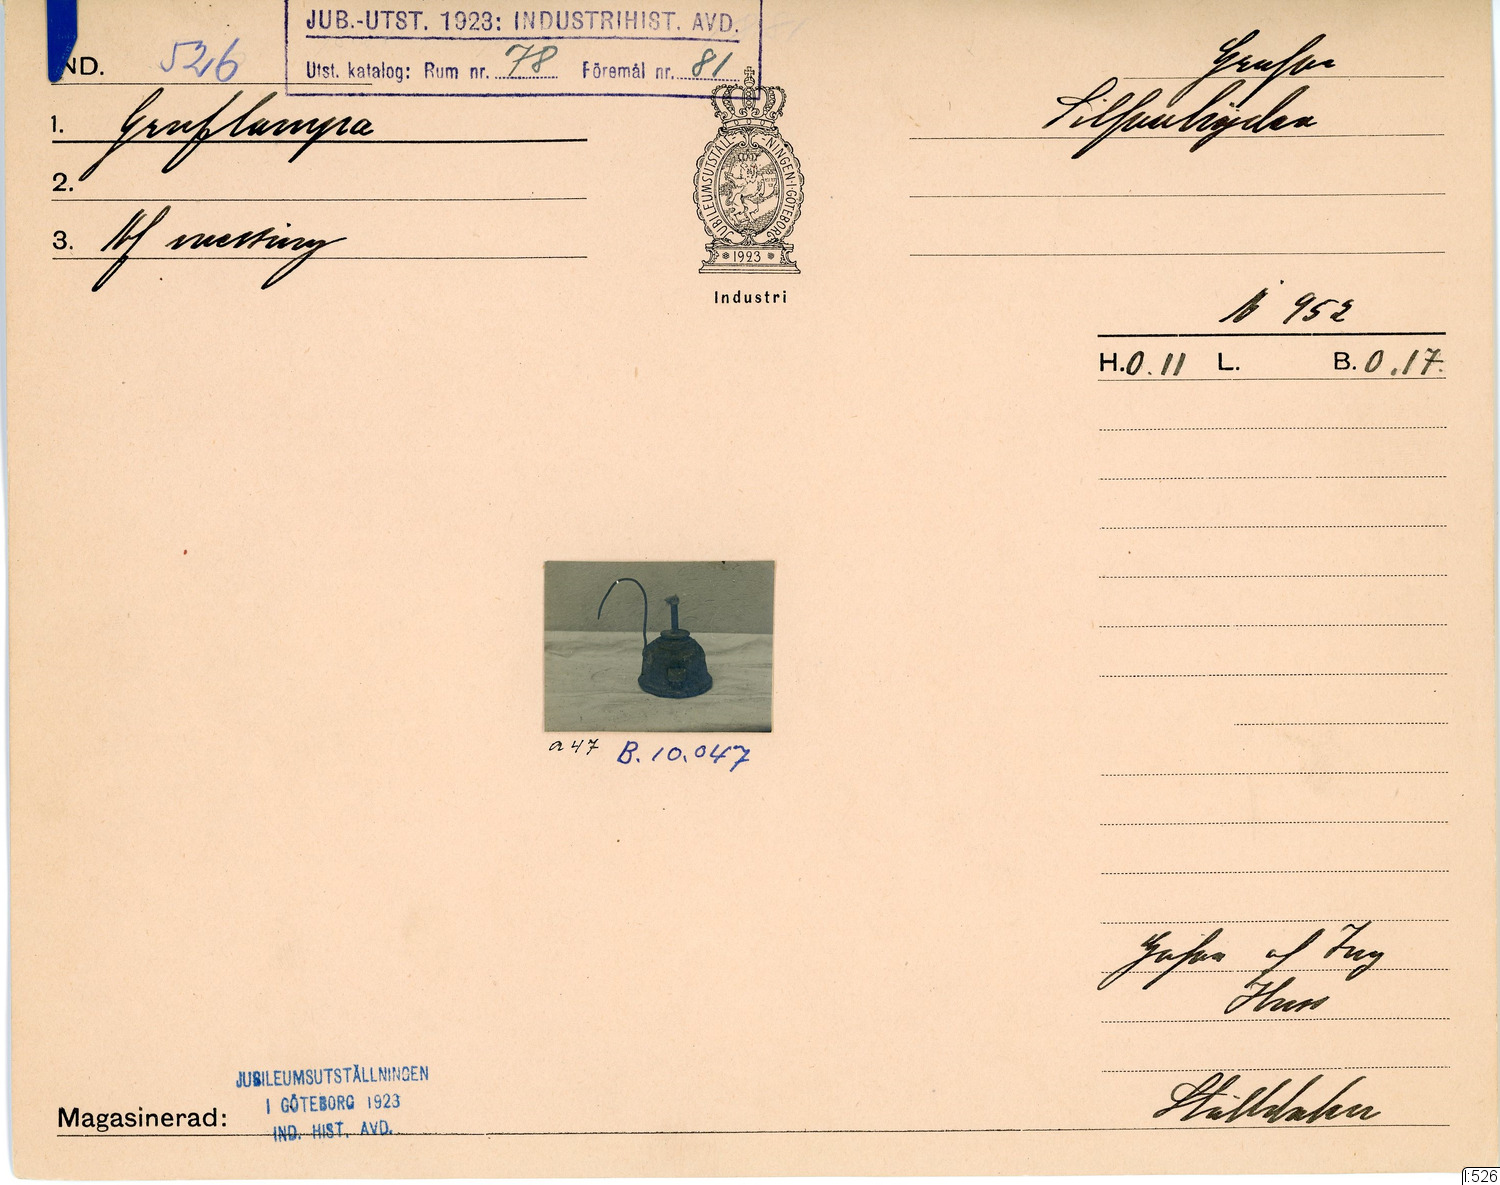 JUB.-UTST. 1923: INDUSTRIHIST. AVD.
Utst. katalog: Rum nr. 78 Föremål nr. 81
IND. 526
1. Gruflampa
2.
3. Af messing
JUBILEUMSUTSTÄLLNINGEN·I·GÖTEBORG
1923
Industri
Grufva
Silfverhöjden
N 952
H. 0.11 L. B. 0.17.
a 47 B. 10.047
Gåfva af Ing
Huss
Ställdalen
JUBILEUMSUTSTÄLLNINGEN
I GÖTEBORG 1923
IND. HIST. AVD.
Magasinerad:
I:526